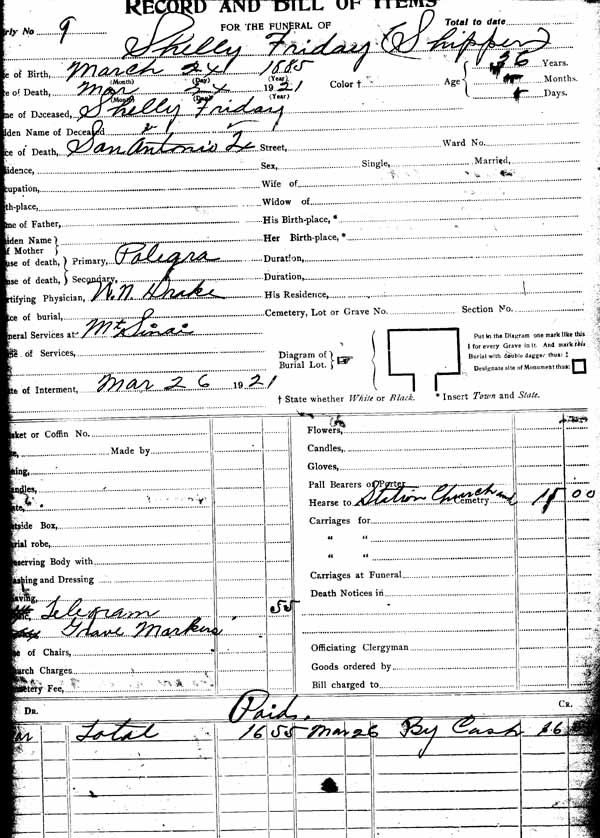 RECORD AND BILL OF ITEMS
rly No 9 FOR THE FUNERAL OF Total to date
Shelly Friday (Shipper)
e of Birth, March 24 1885 36 Years.
(Month) (Day) (Year)
e of Death, Mar 24 1921 Color † Age Months.
(Month) (Day) (Year) Days.
me of Deceased, Shelly Friday
iden Name of Deceased
ce of Death, San Antonio Street, Ward No.
idence, Sex, Single, Married,
upation, Wife of
th-place, Widow of
me of Father, His Birth-place, *
iden Name of Mother Her Birth-place, *
use of death, Primary, Palegra Duration,
use of death, Secondary, Duration,
rtifying Physician, W.N. Drake His Residence,
ce of burial, Cemetery, Lot or Grave No. Section No.
neral Services at Mt Sinai
e of Services, Diagram of Burial Lot.
Put in the Diagram one mark like this
I for every Grave in it. And mark this
Burial with double dagger thus: ‡
Designate site of Monument thus:
te of Interment, Mar 26 1921
† State whether White or Black. * Insert Town and State.
sket or Coffin No. Flowers,
Made by Candles,
ning, Gloves,
ndles, Pall Bearers or Porter
ate, Hearse to Station Church and Cemetery 15 00
tside Box, Carriages for
rial robe, " "
serving Body with " "
ashing and Dressing Carriages at Funeral
aving, Death Notices in
Telegram 55
Grave Markers
e of Chairs, Officiating Clergyman
urch Charges Goods ordered by
metery Fee, Bill charged to
Dr. Paid. Cr.
ar Total 16 55 Mar 26 By Cash 16